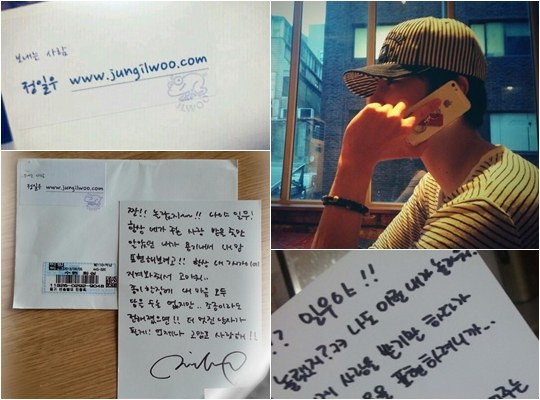 보내는 사람
정일우 www.jungilwoo.com
ILWOO
정일우 www.jungilwoo.com
짠!! 놀랐지~!! 나야 일우!
항상 네가 주는 사랑 받을 줄만
알았던 내가 용기내서 내 맘
표현해보려고!! 항상 내
지켜봐줘서 고마워..
종이 한장에 내 마음 모두
담을 순 없지만.. 조금이라도
전해졌으면!! 더 멋진 남자가
될게! 언제나 고맙고 사랑해!!
?? 일우야!!
나도 이런 내가
게 사랑을 받기만 하다가
음을 표현하려니까...
주는